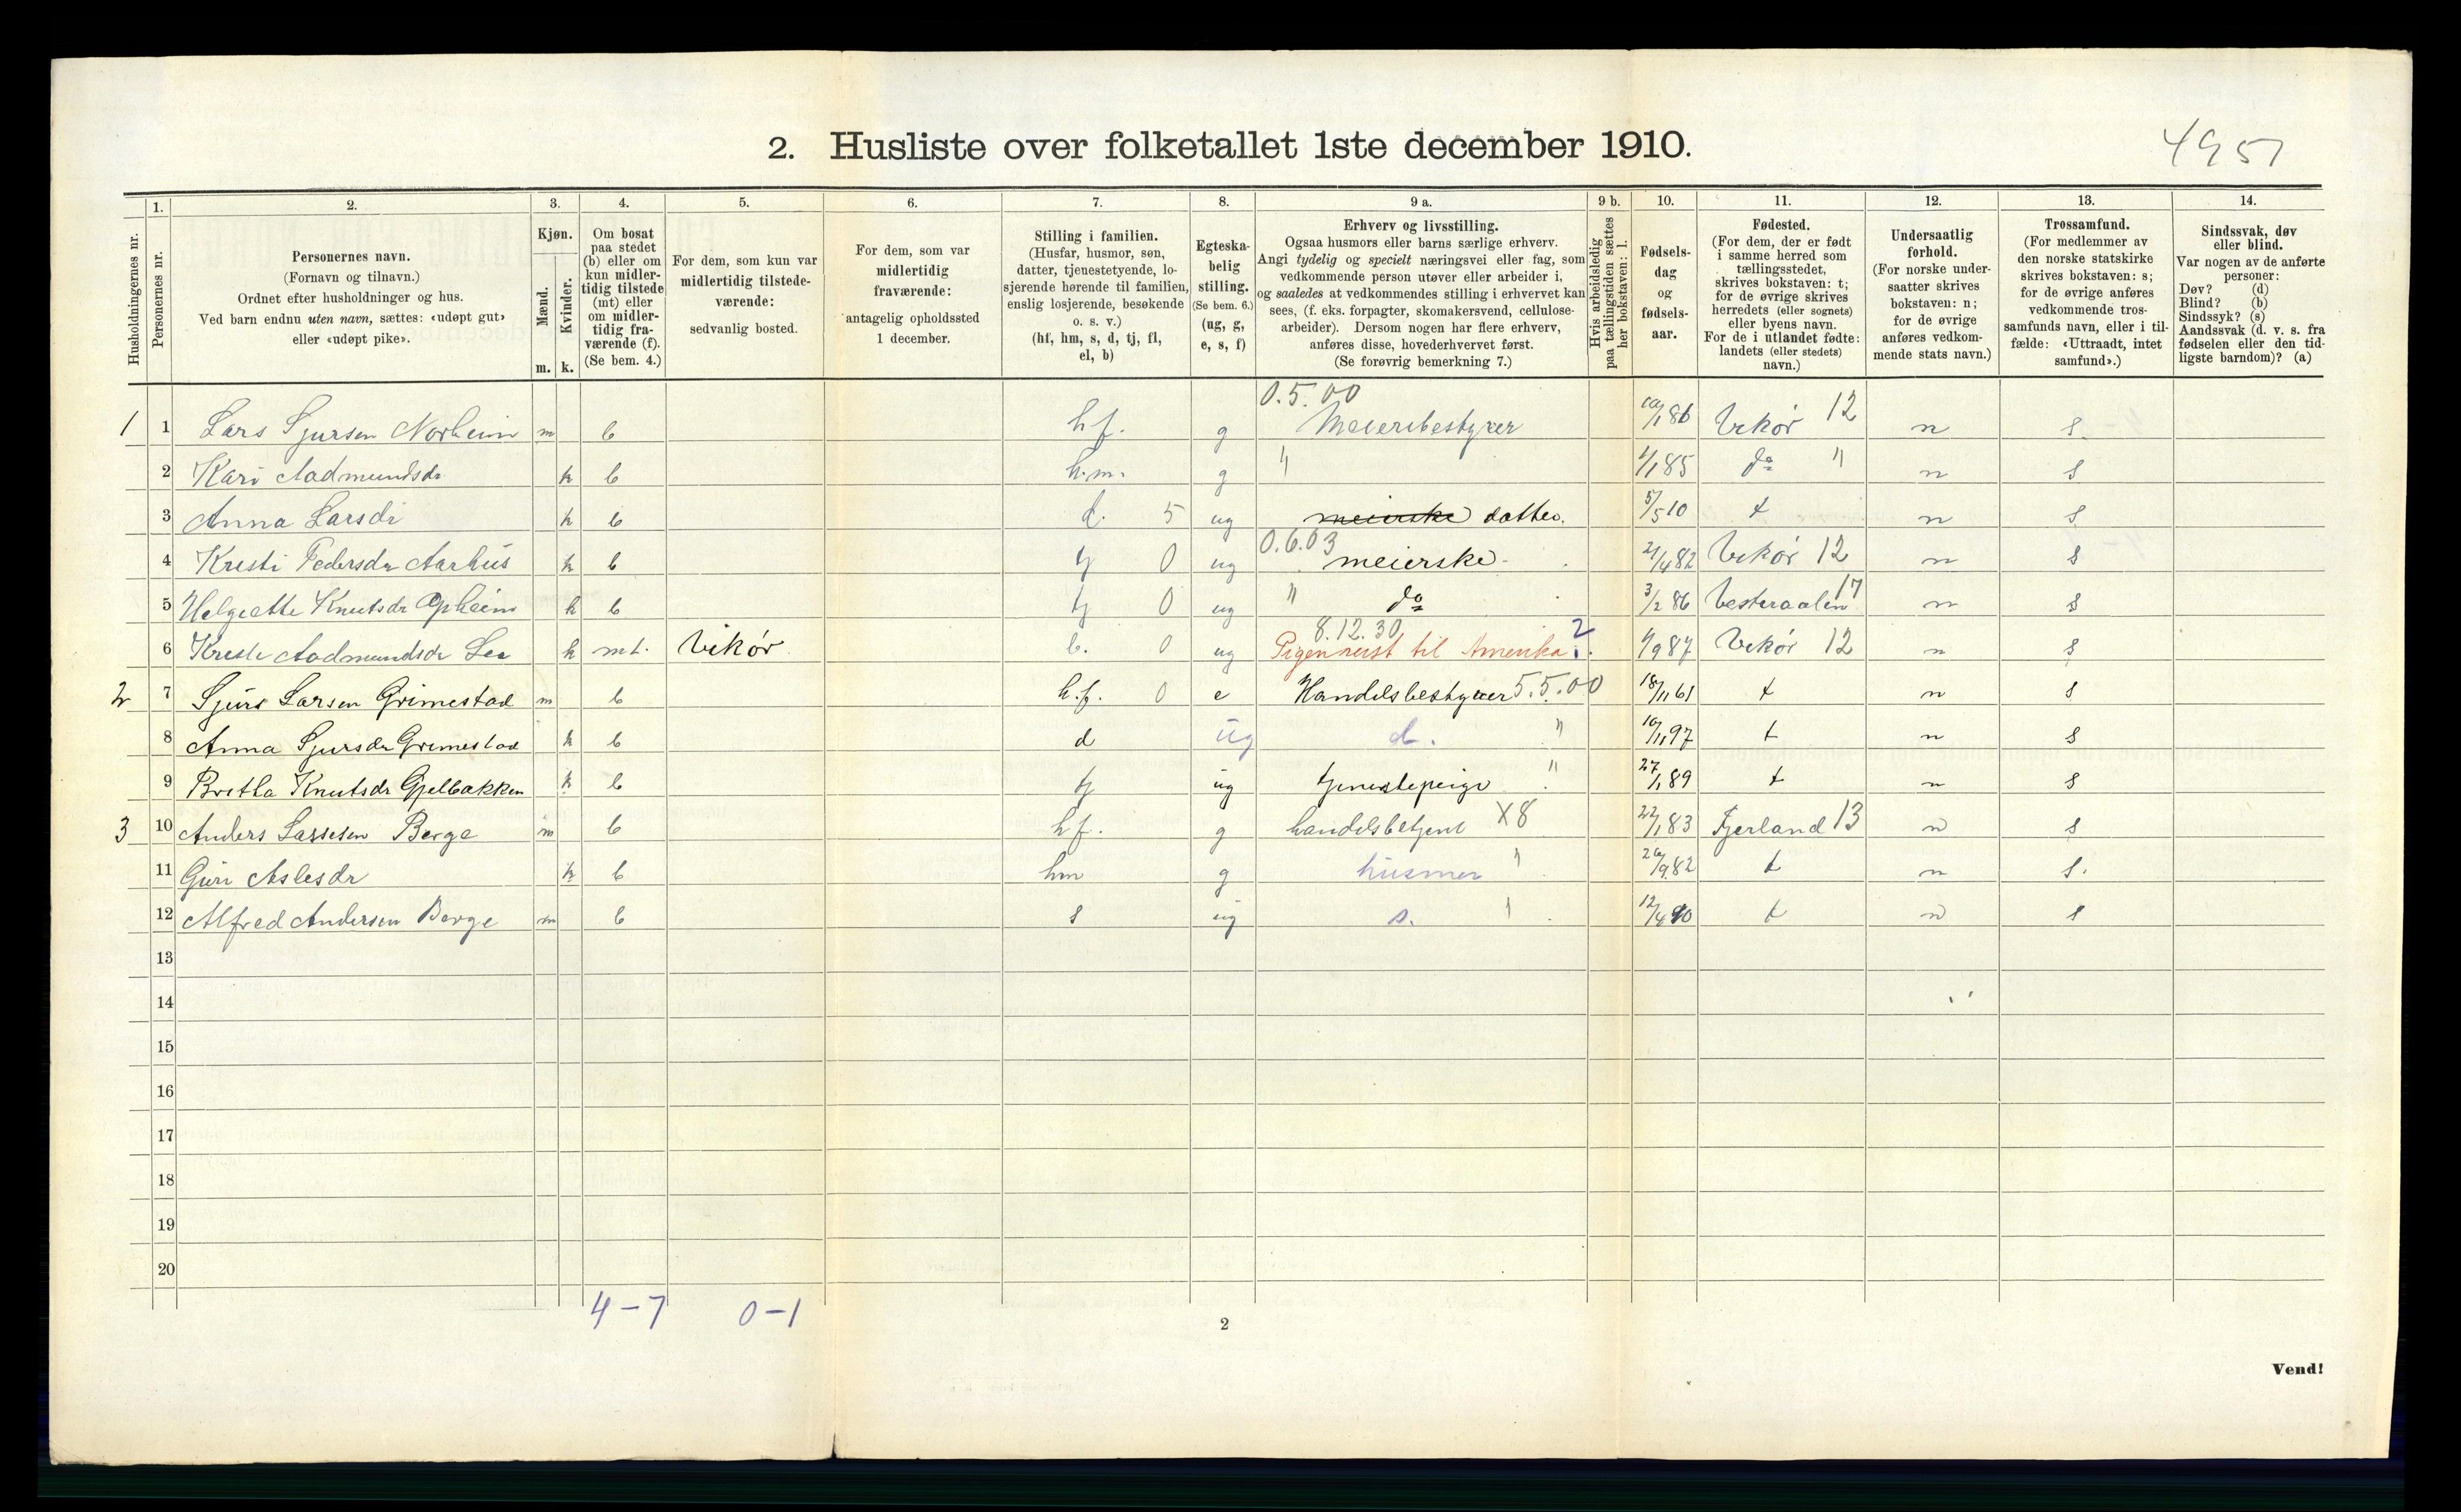 2. Husliste over folketallet 1ste december 1910.
4951
Husholdningernes nr.
1. Personernes nr.
2. Personernes navn. (Fornavn og tilnavn.) Ordnet efter husholdninger og hus. Ved barn endnu uten navn, sættes: «udøpt gut» eller «udøpt pike».
3. Kjøn. Mænd. m. Kvinder. k.
4. Om bosat paa stedet (b) eller om kun midlertidig tilstede (mt) eller om midlertidig fraværende (f). (Se bem. 4.)
5. For dem, som kun var midlertidig tilstedeværende: sedvanlig bosted.
6. For dem, som var midlertidig fraværende: antagelig opholdssted 1 december.
7. Stilling i familien. (Husfar, husmor, søn, datter, tjenestetyende, losjerende hørende til familien, enslig losjerende, besøkende o. s. v.) (hf, hm, s, d, tj, fl, el, b)
8. Egteskabelig stilling. (Se bem. 6.) (ug, g, e, s, f)
9 a. Erhverv og livsstilling. Ogsaa husmors eller barns særlige erhverv. Angi tydelig og specielt næringsvei eller fag, som vedkommende person utøver eller arbeider i, og saaledes at vedkommendes stilling i erhvervet kan sees, (f. eks. forpagter, skomakersvend, cellulosearbeider). Dersom nogen har flere erhverv, anføres disse, hovederhvervet først. (Se forøvrig bemerkning 7.)
9 b. Hvis arbeidsledig paa tællingstiden sættes her bokstaven: l.
10. Fødselsdag og fødselsaar.
11. Fødested. (For dem, der er født i samme herred som tællingsstedet, skrives bokstaven: t; for de øvrige skrives herredets (eller sognets) eller byens navn. For de i utlandet fødte: landets (eller stedets) navn.)
12. Undersaatlig forhold. (For norske undersaatter skrives bokstaven: n; for de øvrige anføres vedkommende stats navn.)
13. Trossamfund. (For medlemmer av den norske statskirke skrives bokstaven: s; for de øvrige anføres vedkommende trossamfunds navn, eller i tilfælde: «Uttraadt, intet samfund».)
14. Sindssvak, døv eller blind. Var nogen av de anførte personer: Døv? (d) Blind? (b) Sindssyk? (s) Aandssvak (d. v. s. fra fødselen eller den tidligste barndom)? (a)
1 1 Lars Sjursen Norheim m b hf. g 0.5.00 Meieribestyrer 10/1 86 Vikør 12 n s
2 Kari Aadmundsdr k b h.m. g " 1/1 85 do " n s
3 Anna Larsdr k b d. 5 ug meierske datter. 5/5 10 t n s
4 Kristi Pedersdr Aarhus k b tj 0 ug 0.6.03 meierske 21/4 82 Vikør 12 n s
5 Helgeette Knutsdr Opheim k b tj 0 ug " do 3/2 86 Vesteraalen 17 n s
6 Kristi Aadmundsdr Lea k mt. Vikør b. 0 ug 8.12.30 Pigen reist til Amerika. 2 1/9 87 Vikør 12 n s
2 7 Sjurs Larsen Grimestad m b h.f. 0 e Handelsbestyrer 5.5.00 18/11 61 t n s
8 Anna Sjursdr Grimestad k b d ug d. " 10/11 97 t n s
9 Britha Knutsdr Gjelbakken k b tj ug tjenestepige " 27/1 89 t n s
3 10 Anders Lassesen Berge m b hf. g handelsbetjent X8 22/1 83 Fjerland 13 n s
11 Guri Aslesdr k b hm g husmor " 26/9 82 t n s.
12 Alfred Andersen Berge m b s ug s. " 12/4 10 t n s
13
14
15
16
17
18
19
20
4-7 0-1
2
Vend!